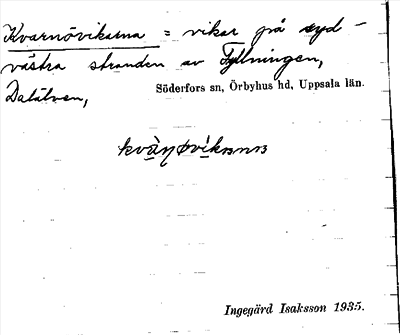 Kvarnövikarna = vikar på syd-
västra stranden av Fyllningen,
Dalälven,
Söderfors sn, Örbyhus hd, Uppsala län.
Ingegärd Isaksson 1935.